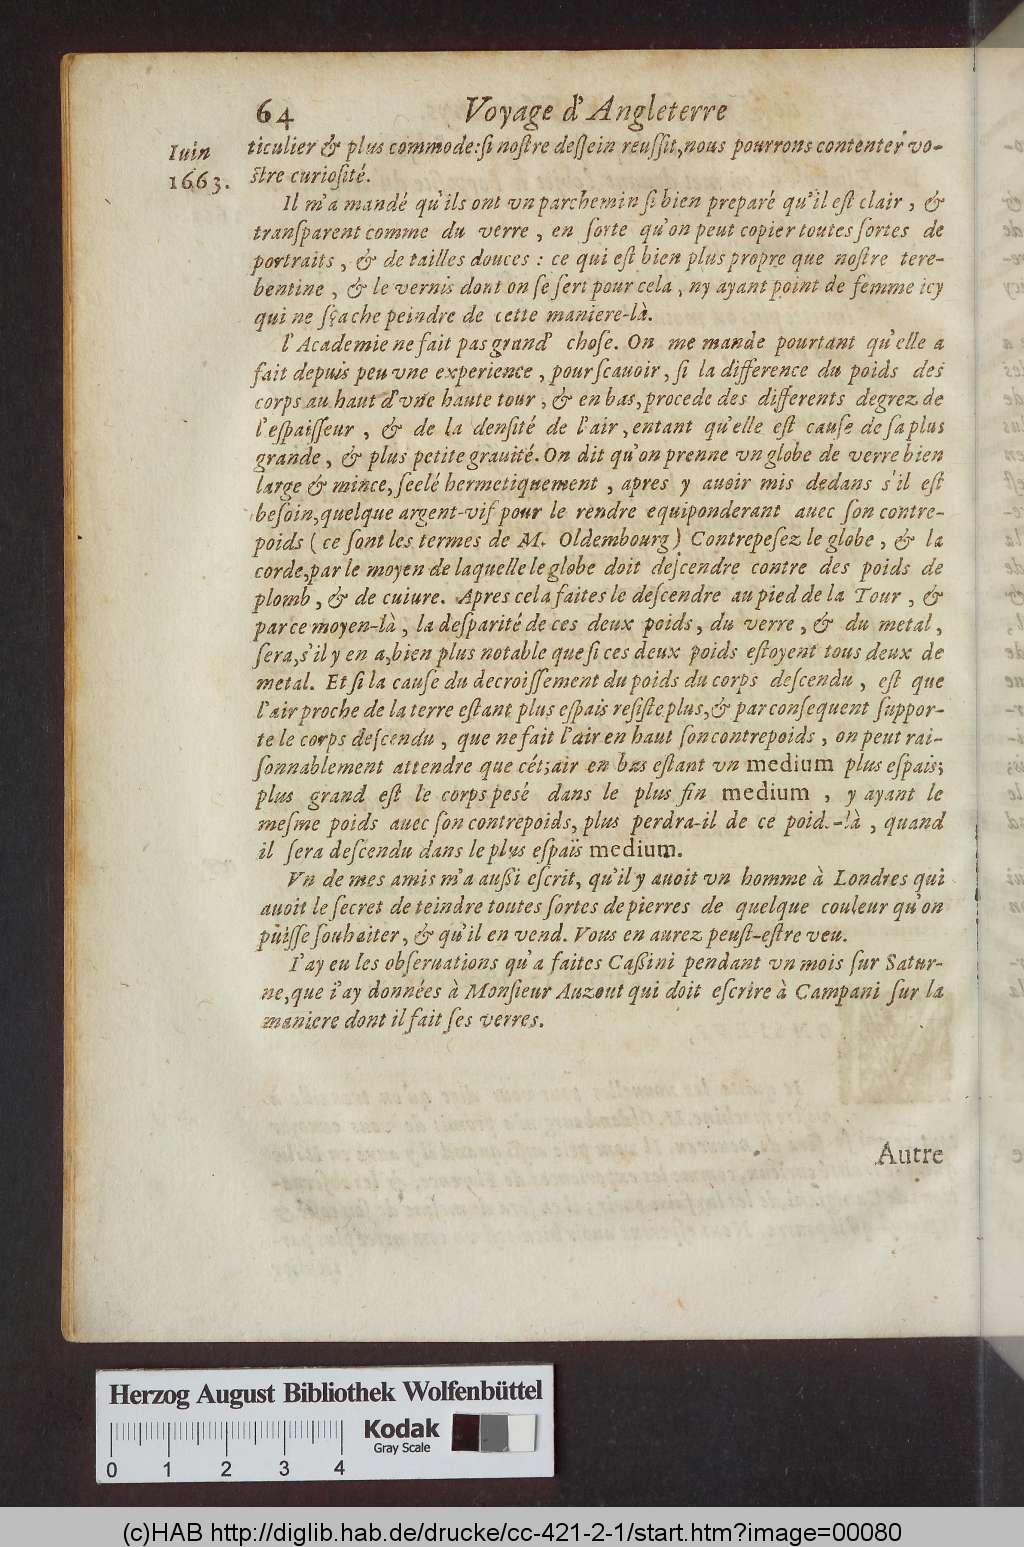 64 Voyage d'Angleterre
Iuin
1663.
ticulier & plus commode: si nostre dessein reussit, nous pourrons contenter vo-
stre curiosité.
Il m'a mandé qu'ils ont vn parchemin si bien preparé qu'il est clair, &
transparent comme du verre, en sorte qu'on peut copier toutes sortes de
portraits, & de tailles douces : ce qui est bien plus propre que nostre tere-
bentine, & le vernis dont on se sert pour cela, ny ayant point de femme icy
qui ne sçache peindre de cette maniere-là.
l'Academie ne fait pas grand chose. On me mande pourtant qu'elle a
fait depuis peu vne experience, pour scauoir, si la difference du poids des
corps au haut d'vne haute tour, & en bas, procede des differents degrez de
l'espaisseur, & de la densité de l'air, entant qu'elle est cause de sa plus
grande, & plus petite grauité. On dit qu'on prenne vn globe de verre bien
large & mince, seelé hermetiquement, apres y auoir mis dedans s'il est
besoin, quelque argent-vif pour le rendre equiponderant auec son contre-
poids (ce sont les termes de M. Oldembourg) Contrepesez le globe, & la
corde, par le moyen de laquelle le globe doit descendre contre des poids de
plomb, & de cuiure. Apres cela faites le descendre au pied de la Tour, &
par ce moyen-là, la desparité de ces deux poids, du verre, & du metal,
sera, s'il y en a, bien plus notable que si ces deux poids estoyent tous deux de
metal. Et si la cause du decroissement du poids du corps descendu, est que
l'air proche de la terre estant plus espais resiste plus, & par consequent suppor-
te le corps descendu, que ne fait l'air en haut son contrepoids, on peut rai-
sonnablement attendre que cét air en bas estant vn medium plus espais;
plus grand est le corps pesé dans le plus fin medium, y ayant le
mesme poids auec son contrepoids, plus perdra-il de ce poid.-là, quand
il sera descendu dans le plus espais medium.
Vn de mes amis m'a aussi escrit, qu'il y auoit vn homme à Londres qui
auoit le secret de teindre toutes sortes de pierres de quelque couleur qu'on
puisse souhaiter, & qu'il en vend. Vous en aurez peust-estre veu.
I'ay eu les obseruations qu'a faites Cassini pendant vn mois sur Satur-
ne, que i'ay données à Monsieur Auzout qui doit escrire à Campani sur la
maniere dont il fait ses verres.
Autre
Herzog August Bibliothek Wolfenbüttel
Kodak
Gray Scale
0 1 2 3 4
(c)HAB http://diglib.hab.de/drucke/cc-421-2-1/start.htm?image=00080